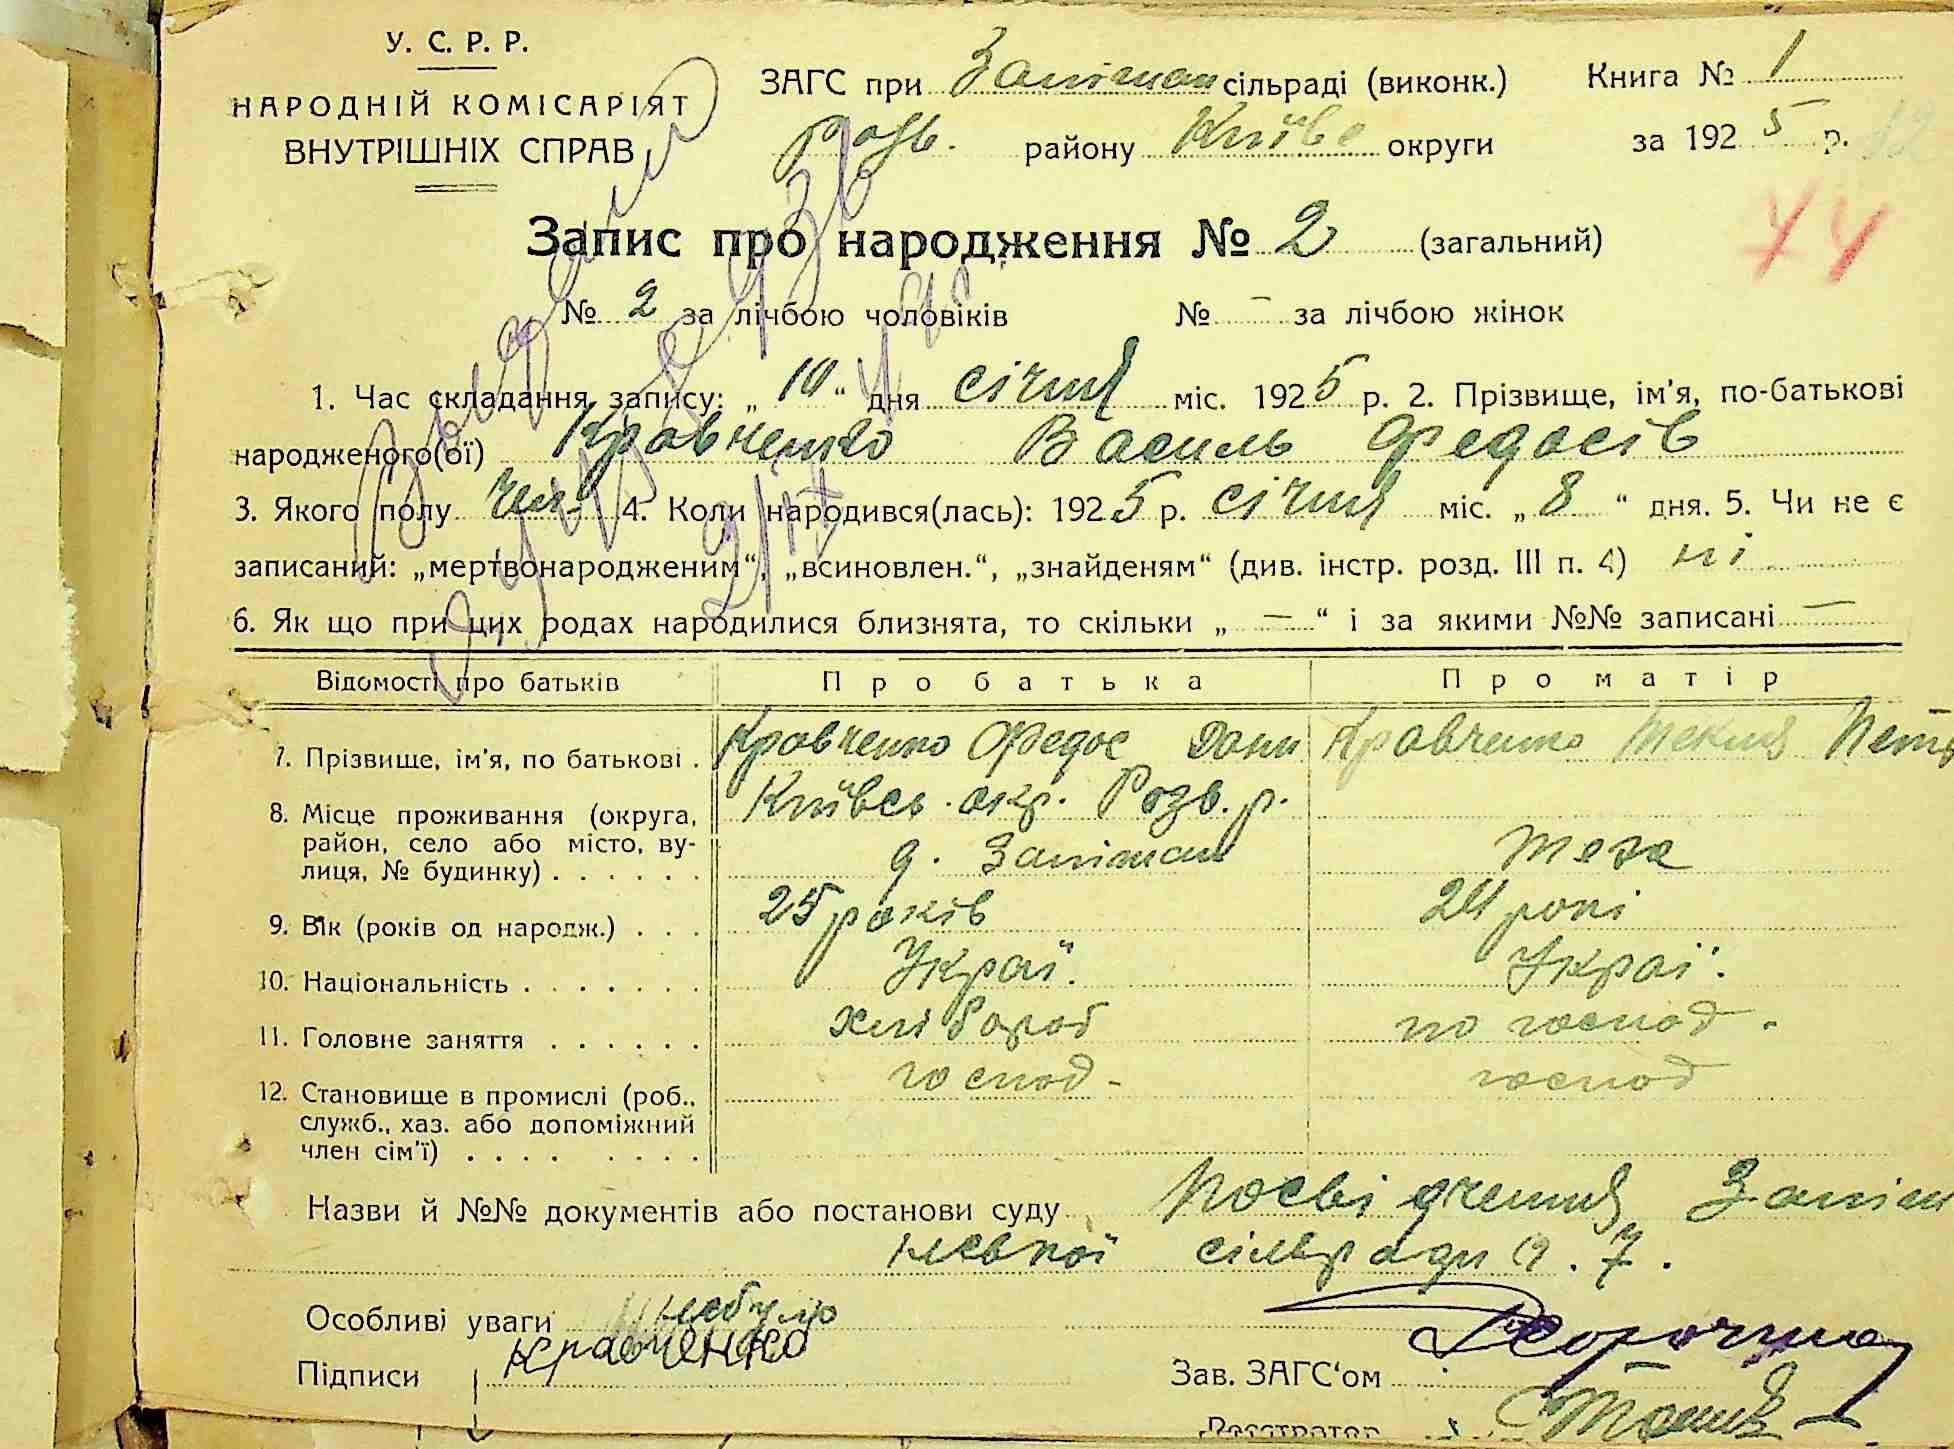 У. С. Р. Р.
НАРОДНІЙ КОМІСАРІЯТ
ВНУТРІШНІХ СПРАВ
ЗАГС при сільраді (виконк.) Книга № 1
Розв. району Київс округи за 1925 р.
74
Запис про народження № 2 (загальний)
№ 2 за лічбою чоловіків № — за лічбою жінок
1. Час складання запису: „ 10 “ дня січня міс. 1925 р. 2. Прізвище, ім'я, по-батькові
народженого(ої) Кравченко Василь Федосів
3. Якого полу чол. 4. Коли народився(лась): 1925 р. січня міс. „ 8 “ дня. 5. Чи не є
записаний: „мертвонародженим“, „всиновлен.“, „знайденям“ (див. інстр. розд. III п. 4) ні
6. Як що при цих родах народилися близнята, то скільки „ — “ і за якими №№ записані —
Відомості про батьків Про батька Про матір
7. Прізвище, ім'я, по батькові . Кравченко Федос Дани Кравченко Текля Петр
8. Місце проживання (округа, Київсь. окр. Розв. р.
район, село або місто, ву-
лиця, № будинку) . . . . . . теж
9. Вік (років од народж.) . . . 25 років 24 рокі
10. Національність . . . . . . . Украї. Украї.
11. Головне заняття . . . . . . хлібороб по господ.
12. Становище в промислі (роб., господ- господ
служб., хаз. або допоміжний
член сім'ї) . . . . . . . .
Назви й №№ документів або постанови суду Посвідчення
сільради
Особливі уваги небуло
Підписи Кравченко Зав. ЗАГС'ом
Реєстратор